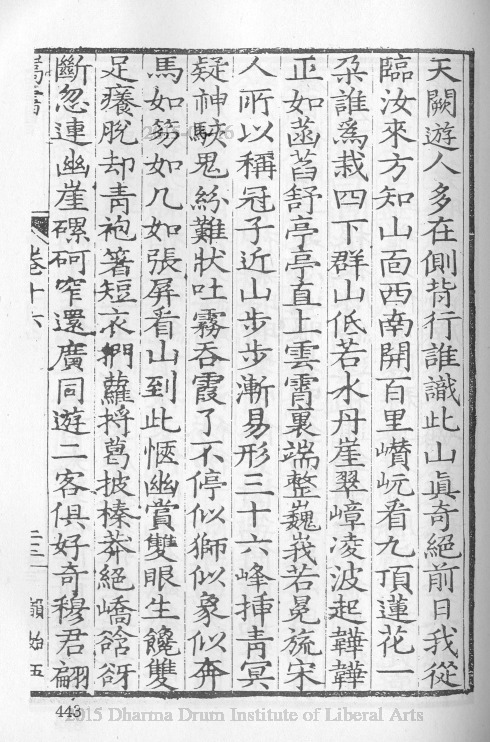 天闕遊人多在側背行誰識此山眞奇絕前日我從
臨汝來方知山面西南開百里巑岏看九頂蓮花一
朶誰爲栽四下群山低若水丹崖翠嶂凌波起韡韡
正如菡萏舒亭亭直上雲霄裏端整巍峩若冕旒宋
人所以稱冠子近山步步漸易形三十六峰揷靑冥
疑神駴鬼紛難狀吐霧吞霞了不停似獅似象似奔
馬如笏如几如張屏看山到此愜幽賞雙眼生饞雙
足癢脫却靑袍著短衣捫蘿捋葛披榛莽絕嶠谽谺
斷忽連幽崖磥砢窄還廣同遊二客俱好奇穆君翩
卷十六
二三
韻始五
443
2015 Dharma Drum Institute of Liberal Arts